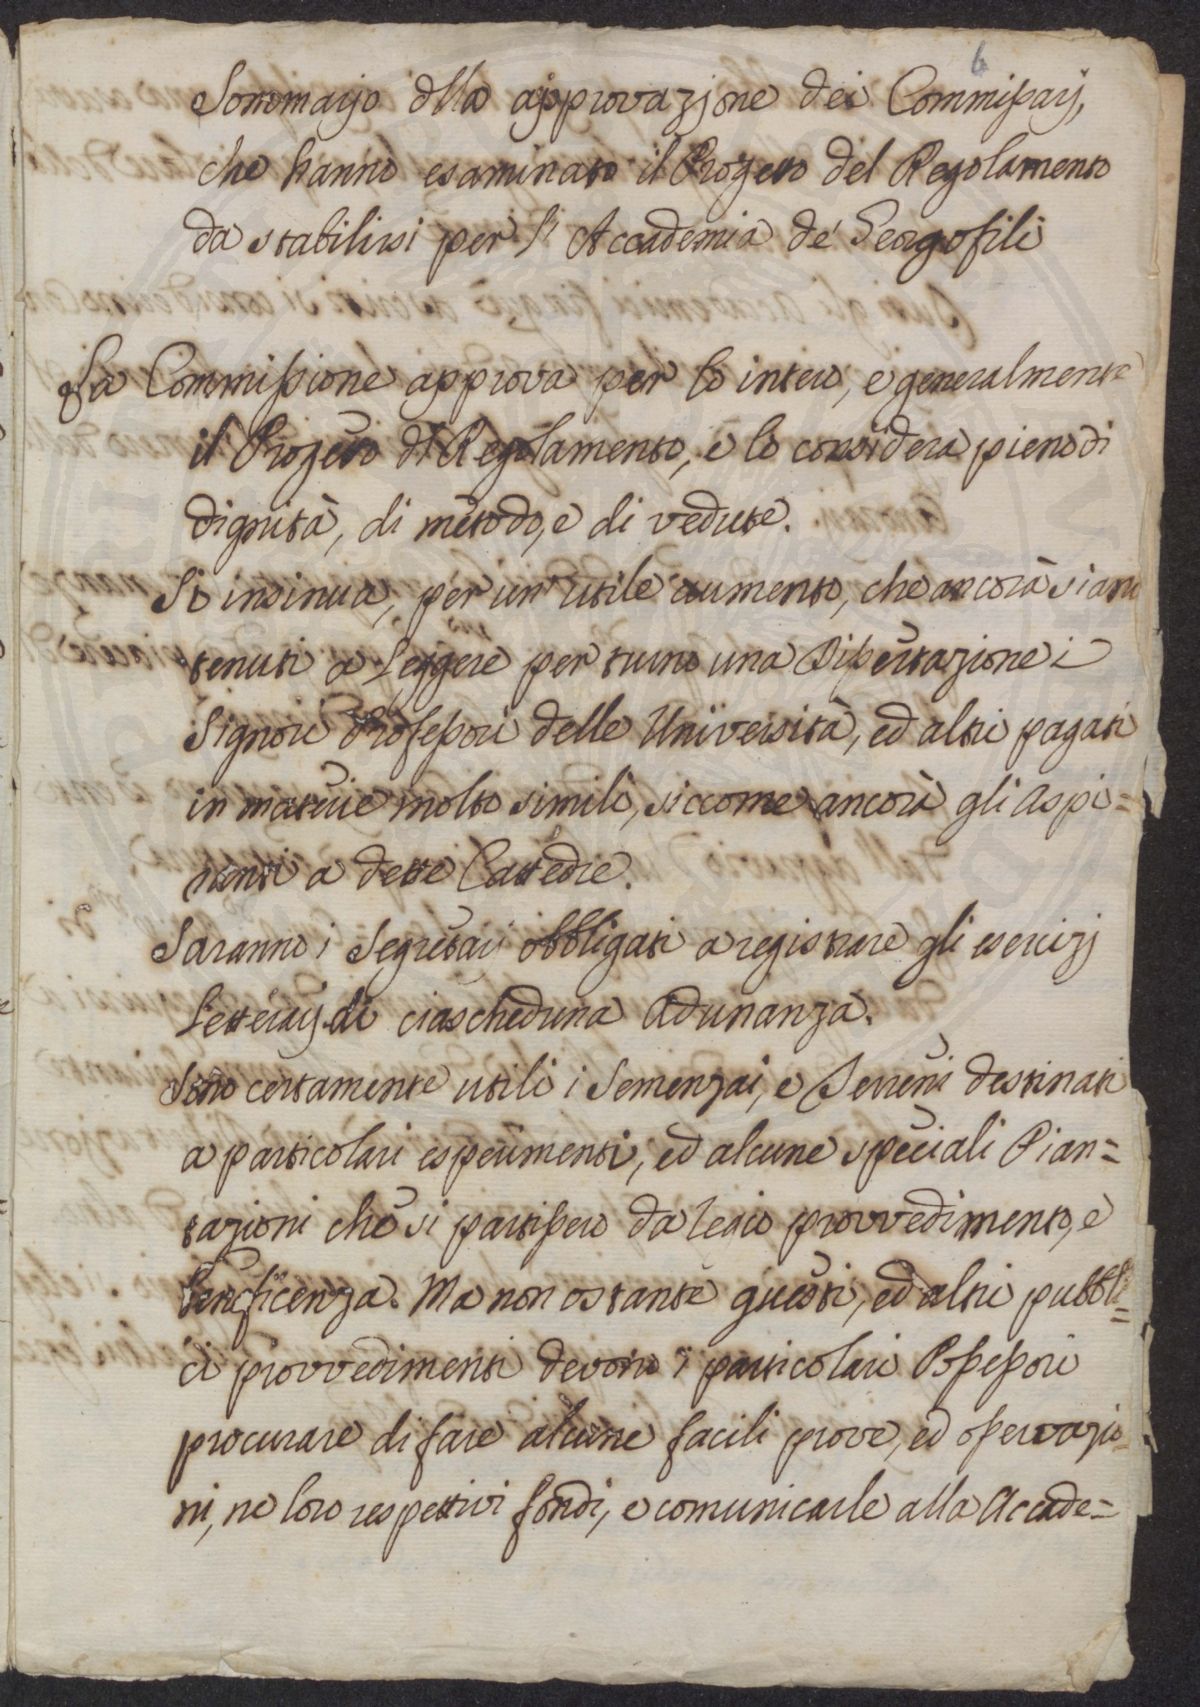 6
Sommario della approvazione dei Commissarj,
che hanno esaminato il Progetto del Regolamento
da stabilirsi per l'Accademia de' Georgofili
La Commissione approva per lo intero, e generalmente
il Progetto di Regolamento, e lo considera pieno di
dignità, di metodo, e di vedute.
Si insinua, per un utile aumento, che ancora siano
tenuti a Leggere per turno una Dissertazione i
Signori Professori delle Università, ed altri pagati
in materie molto simili, siccome ancora gli Aspi=
ranti a dette Cattedre.
Saranno i Segretarj obbligati a registrare gli esercizj
Letterarj di ciascheduna Adunanza.
Sono certamente utili i Semenzai, e Terreni destinati
a particolari esperimenti, ed alcune speciali Pian=
tazioni che si partissero da regio provvedimento, e
beneficenza. Ma non ostante questi, ed altri pubbli=
ci provvedimenti devono i particolari Possessori
procurare di fare alcune facili prove, ed osservazio=
ni, ne loro respettivi fondi, e comunicarle alla Accade=